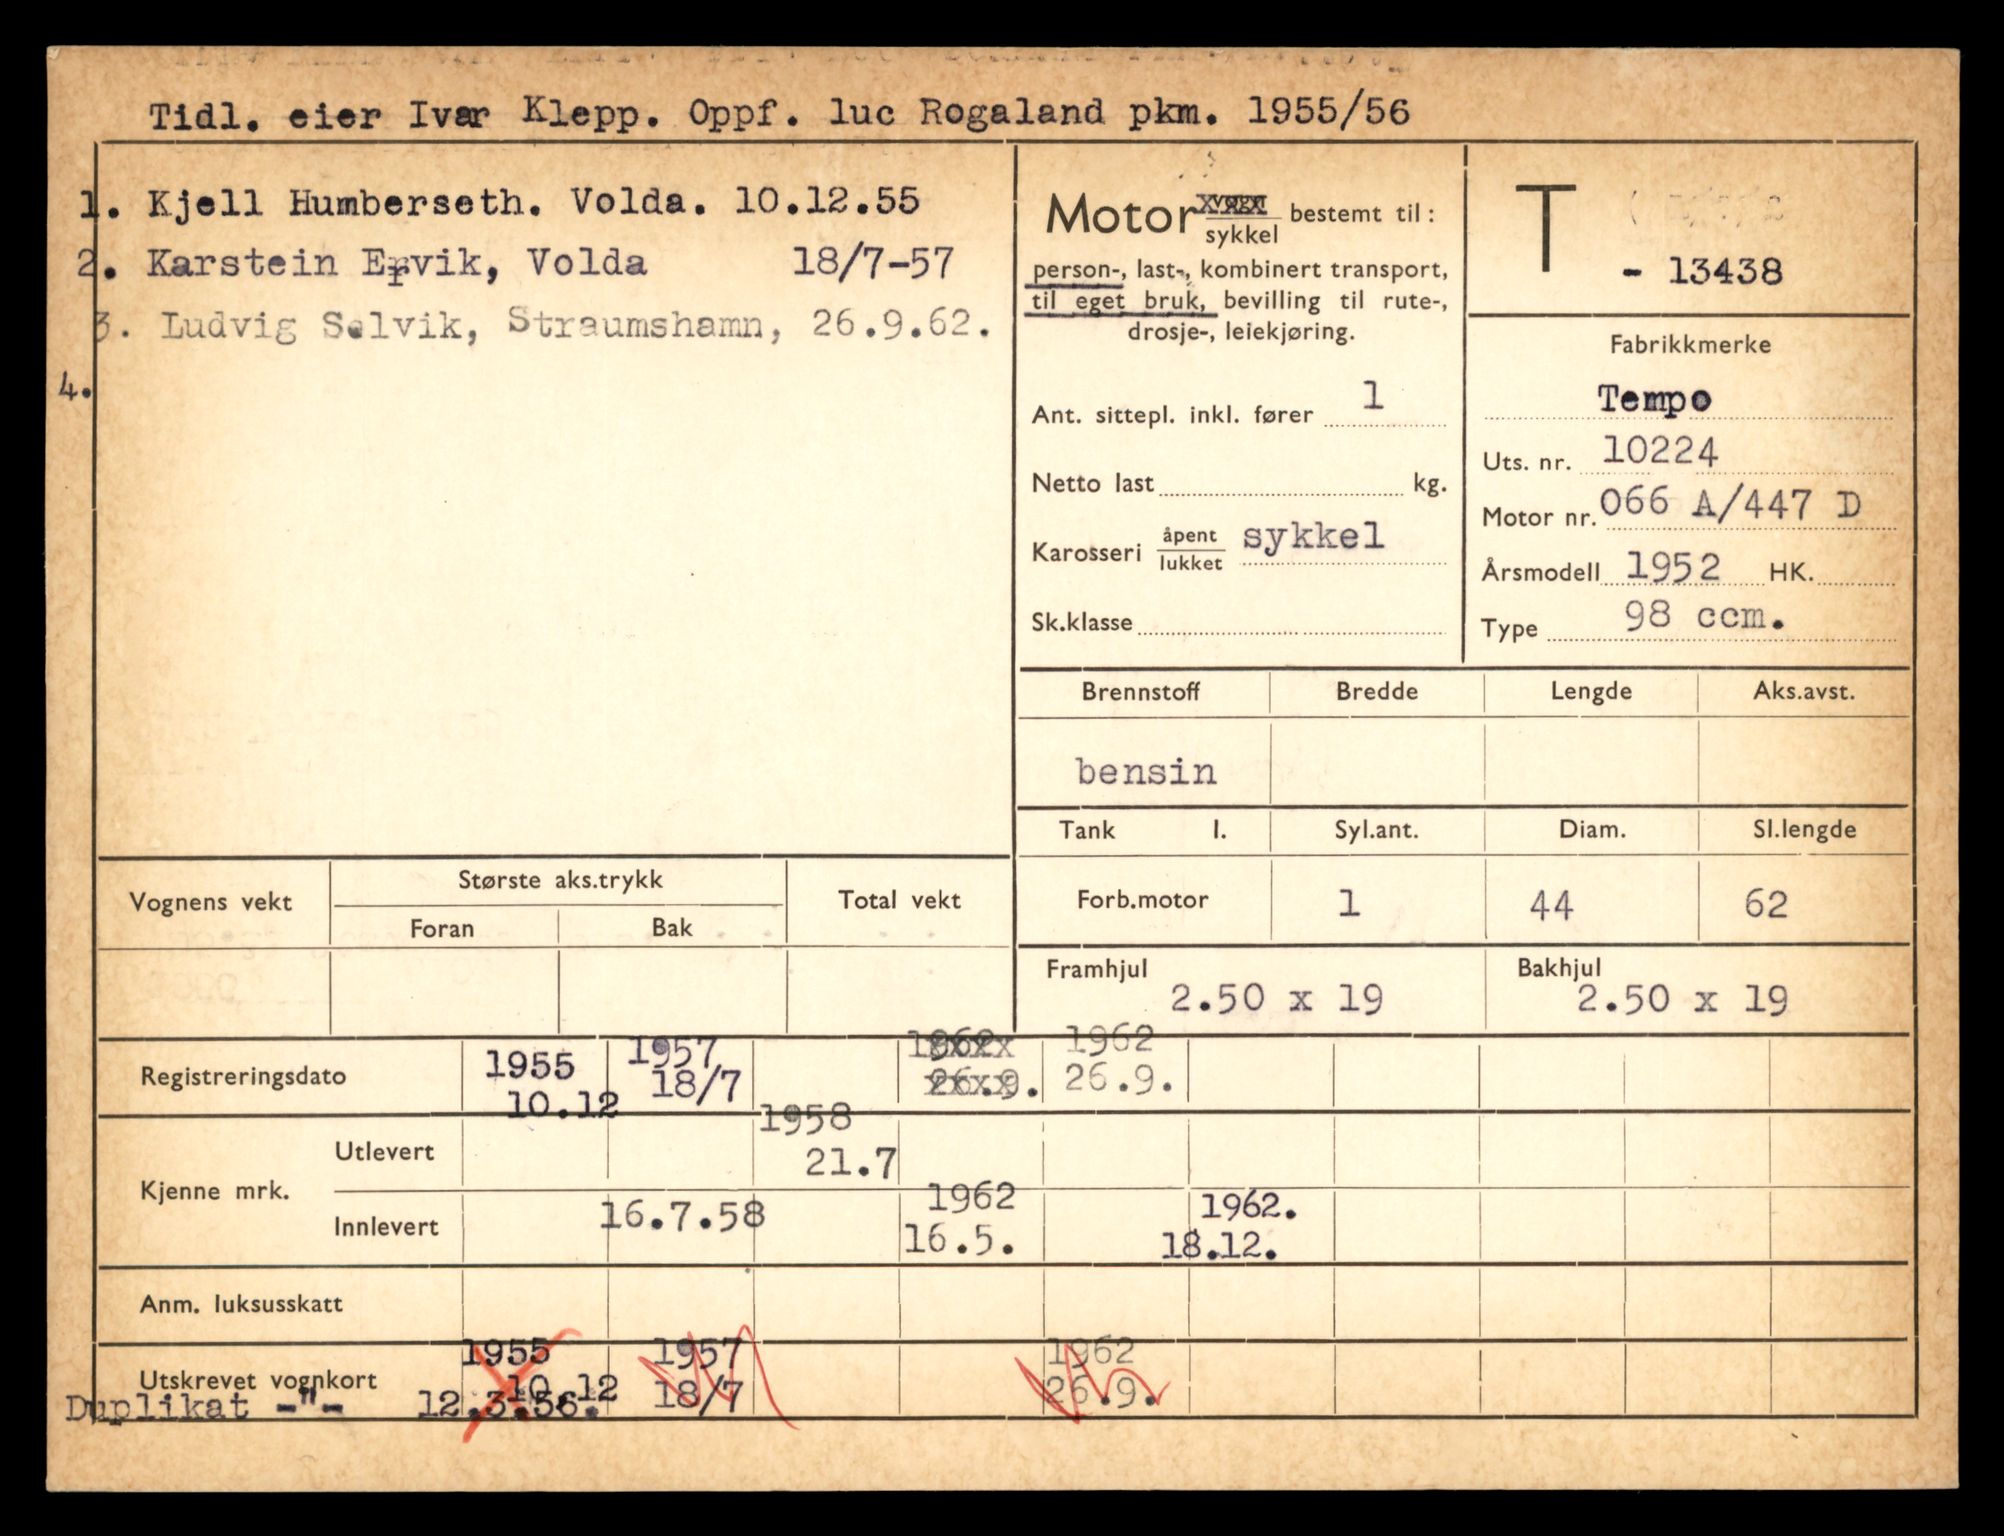 Tidl. eier Ivar Klepp. Oppf. luc Rogaland pkm. 1955/56
1. Kjell Humberseth. Volda. 10.12.55
2. Karstein Ervik, Volda 18/7-57
3. Ludvig Selvik, Straumshamn, 26.9.62.
4.
Motor vogn sykkel bestemt til:
person-, last-, kombinert transport,
til eget bruk, bevilling til rute-,
drosje-, leiekjøring.
Ant. sittepl. inkl. fører 1
Netto last kg.
Karosseri åpent lukket sykkel
Sk.klasse
T - 13438
Fabrikkmerke
Tempo
Uts. nr. 10224
Motor nr. 066 A/447 D
Årsmodell 1952 HK.
Type 98 ccm.
Brennstoff Bredde Lengde Aks.avst.
bensin
Tank l. Syl.ant. Diam. Sl.lengde
Forb.motor 1 44 62
Framhjul 2.50 x 19 Bakhjul 2.50 x 19
Vognens vekt Største aks.trykk Total vekt
Foran Bak
Registreringsdato 1955 10.12 1957 18/7 1962 26.9. 1962 26.9.
Kjenne mrk.
Utlevert 1958 21.7
Innlevert 16.7.58 1962 16.5. 1962. 18.12.
Anm. luksusskatt
Utskrevet vognkort 1955 10.12 1957 18/7 1962 26.9.
Duplikat -"- 12.3.56.